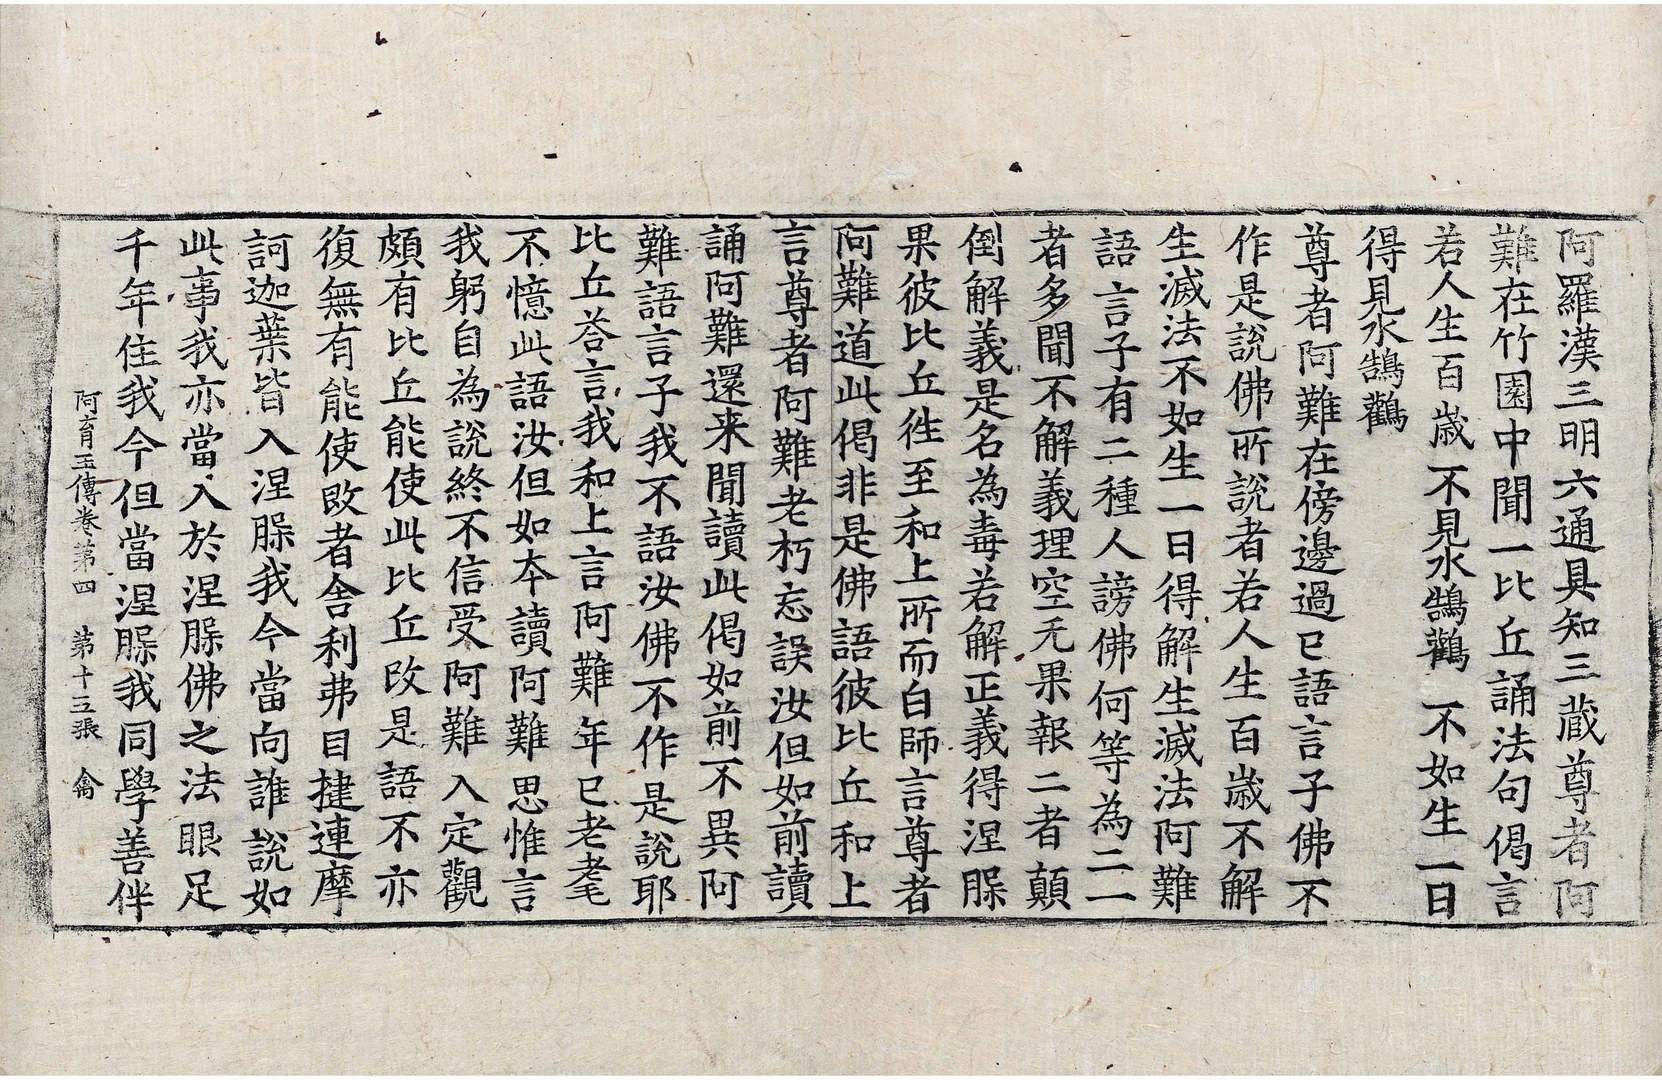 阿羅漢三明六通具知三藏尊者阿
難在竹園中聞一比丘誦法句偈言
若人生百歲 不見水鵠鸛 不如生一日
得見水鵠鸛
尊者阿難在傍邊過已語言子佛不
作是說佛所說者若人生百歲不解
生滅法不如生一日得解生滅法阿難
語言子有二種人謗佛何等為二一
者多聞不解義理空无果報二者顛
倒解義是名為毒若解正義得涅槃
果彼比丘徃至和上所而白師言尊者
阿難道此偈非是佛語彼比丘和上
言尊者阿難老朽忘誤汝但如前讀
誦阿難還来聞讀此偈如前不異阿
難語言子我不語汝佛不作是說耶
比丘荅言我和上言阿難年已老耄
不憶此語汝但如本讀阿難思惟言
我躬自為說終不信受阿難入定觀
頗有比丘能使此比丘改是語不亦
復無有能使改者舍利弗目揵連摩
訶迦葉皆入涅槃我今當向誰說如
此事我亦當入於涅槃佛之法眼足
千年住我今但當涅槃我同學善伴
阿育王傳卷第四 第十三張 禽